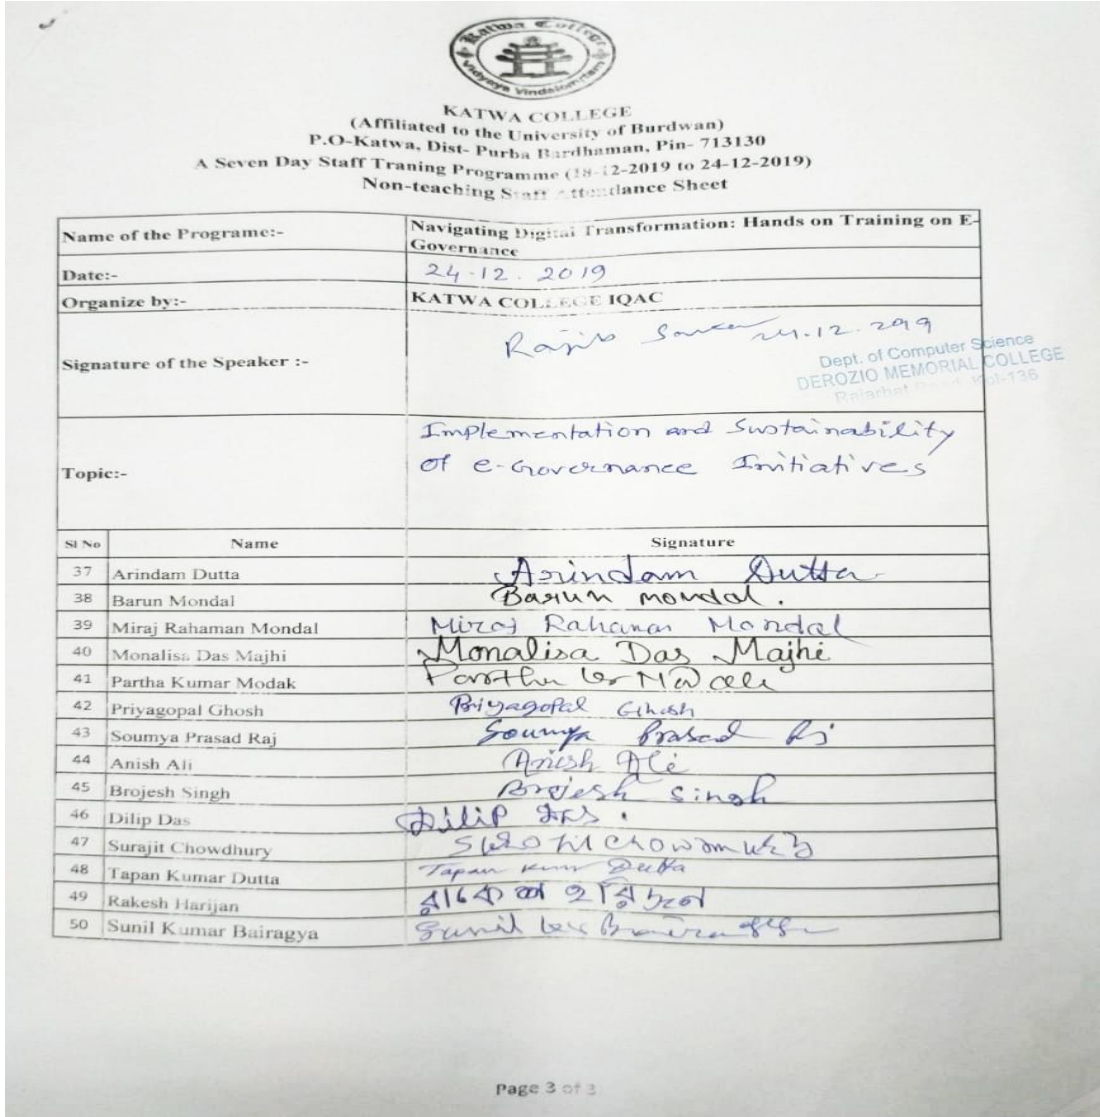 Katwa College
Vidyaya Vindatomrtam
KATWA COLLEGE
(Affiliated to the University of Burdwan)
P.O-Katwa, Dist- Purba Bardhaman, Pin- 713130
A Seven Day Staff Traning Programme (18-12-2019 to 24-12-2019)
Non-teaching Staff Attendance Sheet
Name of the Programe:- Navigating Digital Transformation: Hands on Training on E-
Governance
Date:- 24-12.2019
Organize by:- KATWA COLLEGE IQAC
Signature of the Speaker :- Rajib Sarkar 24.12.2019
Dept. of Computer Science
DEROZIO MEMORIAL COLLEGE
Rajarhat Road, Kol-136
Topic:- Implementation and Sustainability
of e-Governance Initiatives
Sl No Name Signature
37 Arindam Dutta Arindam Dutta
38 Barun Mondal Barun mondal.
39 Miraj Rahaman Mondal Miraj Rahaman Mondal
40 Monalisa Das Majhi Monalisa Das Majhi
41 Partha Kumar Modak Partha Kr
42 Priyagopal Ghosh Priyagopal Ghosh
43 Soumya Prasad Raj Soumya Prasad Raj
44 Anish Ali Anish Ali
45 Brojesh Singh Brojesh Singh
46 Dilip Das Dilip Das.
47 Surajit Chowdhury
48 Tapan Kumar Dutta Tapan Kumar Dutta
49 Rakesh Harijan রাকেশ হরিজন
50 Sunil Kumar Bairagya Sunil Kr Bairagya
Page 3 of 3